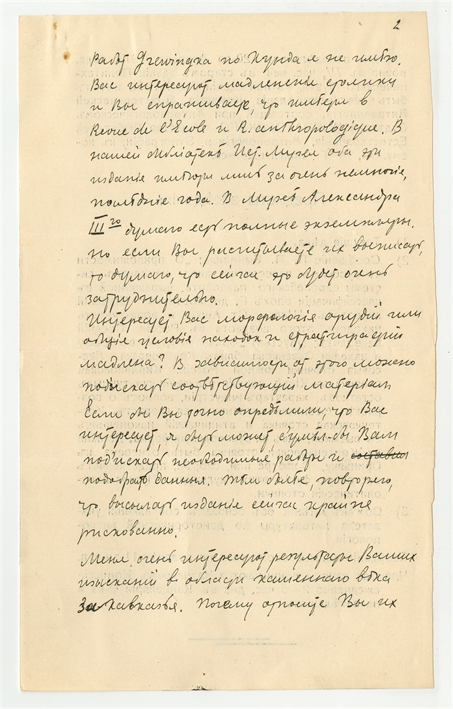 2
Работ Grewingk'а по Кунда я не имѣю.
Вас интересуют мадленскіе стоянки
и Вы спрашиваете, что имѣется в
Revue de l'Ecole и R. anthropologique. В
нашей библіотекѣ Ист. Музея оба эти
изданіе имѣются лишь за очень немногіе,
послѣдніе года. В Музеѣ Александра
III го думаю есть полные экземпляры.
но если Вы расчитываете их выписать,
то думаю, что сейчас это будет очень
затруднительно.
Интересует Вас морфологія орудій или
общія условія находок и стратиграфій
мадлена? В зависимости от этого можно
подыскать соотвѣтствующій матеріал.
Если бы Вы точно опредѣлили, что Вас
интересует, я быть может сумѣл-бы Вам
подыскать необходимые работы и составил
подобрать данныя. Тѣм болѣе повторяю,
что высылать изданіе сейчас крайне
рискованно.
Меня очень интересуют результаты Ваших
изысканій в области каменнаго вѣка
Закавказья. Почему относите Вы их